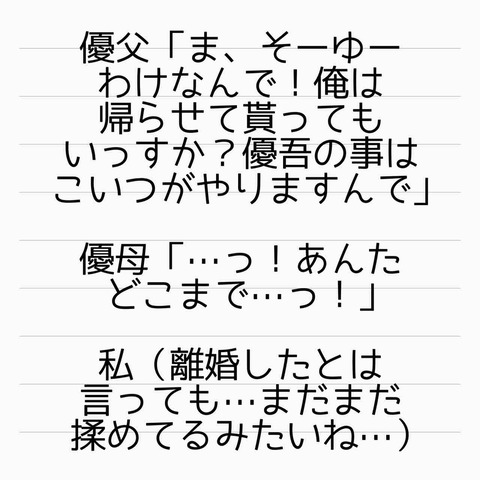 優父「ま、そーゆー
わけなんで！俺は
帰らせて貰っても
いっすか？優吾の事は
こいつがやりますんで」
優母「…っ！あんた
どこまで…っ！」
私（離婚したとは
言っても…まだまだ
揉めてるみたいね…）